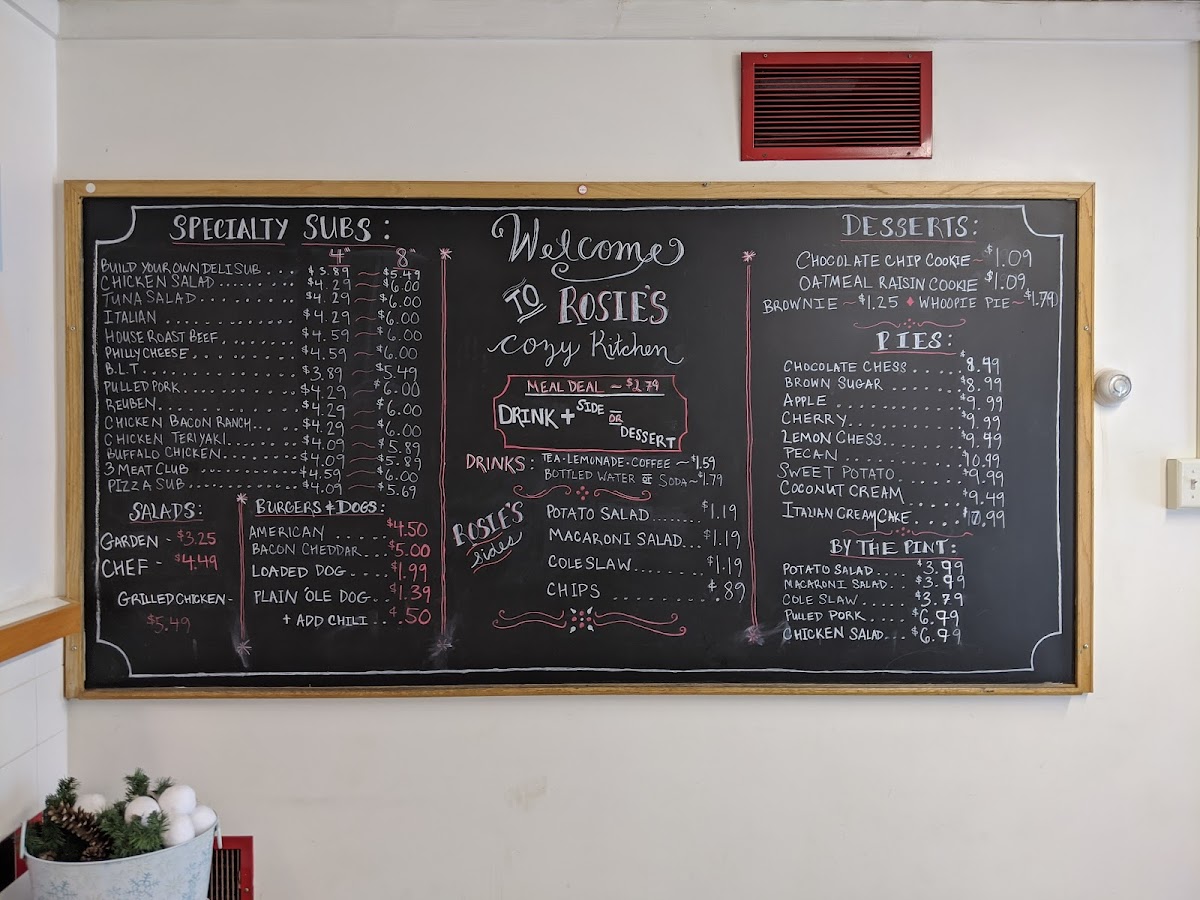 SPECIALTY SUBS:
4" 8"
BUILD YOUR OWN DELI SUB.... $3.89 ~ $5.49
CHICKEN SALAD......... $4.29 ~ $6.00
TUNA SALAD........... $4.29 ~ $6.00
ITALIAN.............. $4.29 ~ $6.00
HOUSE ROAST BEEF......... $4.59 ~ $6.00
PHILLY CHEESE............ $4.59 ~ $6.00
B.L.T.................. $3.89 ~ $5.49
PULLED PORK............ $4.29 ~ $6.00
REUBEN............... $4.29 ~ $6.00
CHICKEN BACON RANCH.... $4.29 ~ $6.00
CHICKEN TERIYAKI........ $4.09 ~ $5.89
BUFFALO CHICKEN......... $4.09 ~ $5.89
3 MEAT CLUB............ $4.59 ~ $6.00
PIZZA SUB.............. $4.09 ~ $5.69
SALADS:
GARDEN - $3.25
CHEF - $4.49
GRILLED CHICKEN -
$5.49
BURGERS & DOGS:
AMERICAN...... $4.50
BACON CHEDDAR... $5.00
LOADED DOG.... $1.99
PLAIN 'OLE DOG... $1.39
+ ADD CHILI... $.50
Welcome
TO ROSIE'S
cozy Kitchen
MEAL DEAL ~ $2.79
DRINK + SIDE OR DESSERT
DRINKS: TEA-LEMONADE-COFFEE ~ $1.59
BOTTLED WATER OR SODA ~ $1.79
ROSIE'S
sides
POTATO SALAD....... $1.19
MACARONI SALAD... $1.19
COLESLAW......... $1.19
CHIPS............ $.89
DESSERTS:
CHOCOLATE CHIP COOKIE ~ $1.09
OATMEAL RAISIN COOKIE $1.09
BROWNIE ~ $1.25 ♦ WHOOPIE PIE ~ $1.79
PIES:
CHOCOLATE CHESS.... $8.49
BROWN SUGAR...... $8.99
APPLE............ $9.99
CHERRY.......... $9.99
LEMON CHESS...... $9.49
PECAN........... $10.99
SWEET POTATO...... $9.99
COCONUT CREAM $9.49
ITALIAN CREAM CAKE.....
BY THE PINT:
POTATO SALAD..... $3.99
MACARONI SALAD... $3.99
COLE SLAW....... $3.79
PULLED PORK..... $6.99
CHICKEN SALAD... $6.99